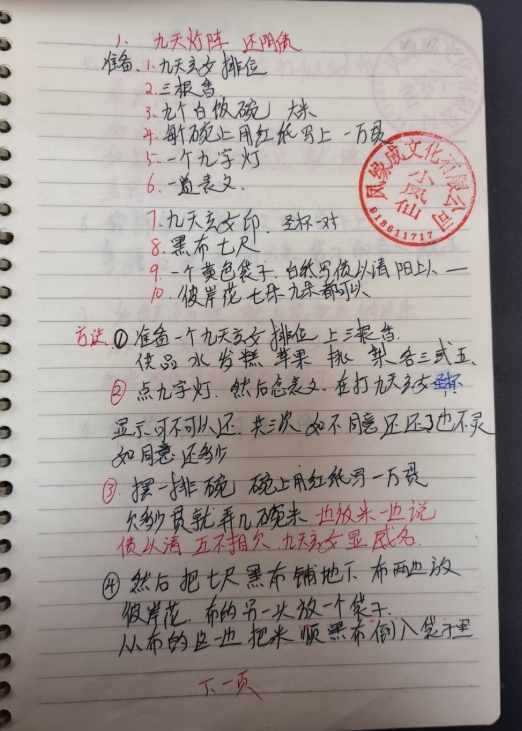 1. 九天灯阵 还阴债
准备. 1. 九天玄女排位
2. 三根香
3. 九个白饭碗 大米
4. 每个碗上用红纸写上一万贯
5. 一个九字灯
6. 一道表文.
7. 九天玄女印. 圣杯一对
8. 黑布七尺
9. 一个黄色袋子. 白纸写债以清 阳上人 一
10. 彼岸花 七朵九朵都可以
方法 ① 准备一个九天玄女排位 上三根香.
供品 水 发糕 苹果 桃 梨 各三或五、
② 点九字灯. 然后念表文. 在打九天玄女圣杯
显示可不可以还. 共三次 如不同意还 还了也不灵
如同意 还多少
③ 摆一排碗 碗上用红纸写一万贯
欠多少贯就弄几碗米 边放米一边说
债以清 互不相欠 九天玄女显威名.
④ 然后把七尺黑布铺地下 布两边放
彼岸花. 布的另一头放一个袋子.
从布的这一边 把米 顺黑布倒入袋子里
下一页
凤缘成文化有限公司
小凤仙
918611717